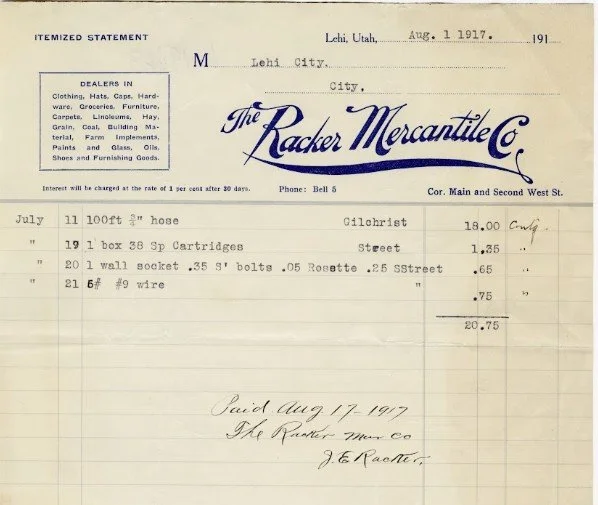 ITEMIZED STATEMENT
Lehi, Utah, Aug. 1 1917. 191
M Lehi City.
City.
DEALERS IN
Clothing, Hats, Caps, Hard-
ware, Groceries, Furniture,
Carpets, Linoleums, Hay,
Grain, Coal, Building Ma-
terial, Farm Implements,
Paints and Glass, Oils,
Shoes and Furnishing Goods.
The Racker Mercantile Co
Interest will be charged at the rate of 1 per cent after 30 days.
Phone: Bell 5
Cor. Main and Second West St.
July 11 100ft ¾" hose Gilchrist 18.00
" 19 1 box 38 Sp Cartridges Street 1.35 "
" 20 1 wall socket .35 S' bolts .05 Rosette .25 SStreet .65 "
" 21 6# #9 wire " .75 "
20.75
Paid Aug 17-1917
The Racker Mer Co
J.E Racker.